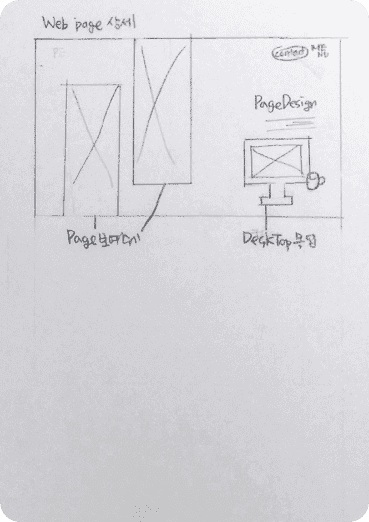 Web page 상세
contact
ME
NU
PageDesign
Page
DeskTop 목업